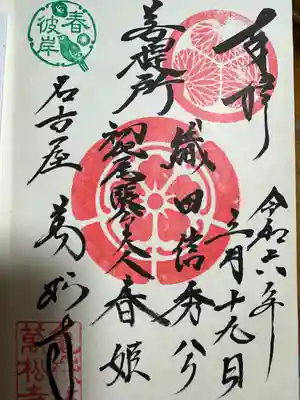 奉拝
令和六年
三月十九日
菩提所
織田信秀公
初代尾張公夫人春姫
名古屋 萬松寺
春彼岸
萬松寺